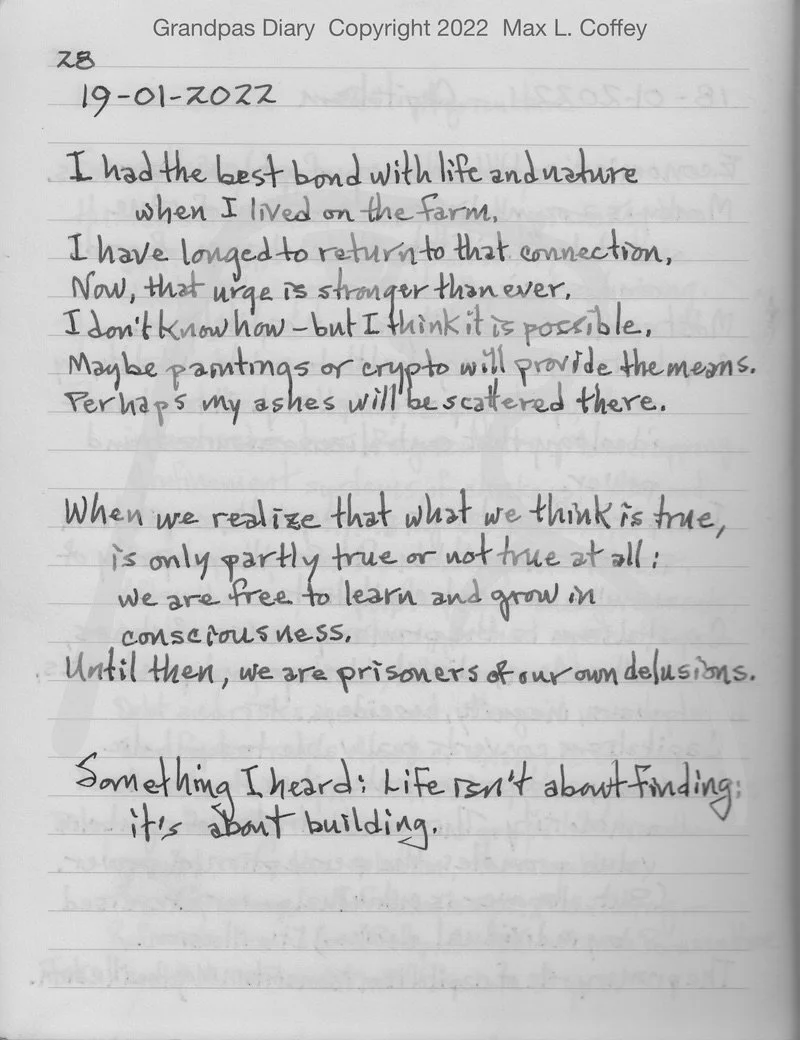 Grandpas Diary Copyright 2022 Max L. Coffey
28
19-01-2022
I had the best bond with life and nature
when I lived on the farm,
I have longed to return to that connection,
Now, that urge is stronger than ever.
I don't know how - but I think it is possible.
Maybe paintings or crypto will provide the means.
Perhaps my ashes will be scattered there.
When we realize that what we think is true,
is only partly true or not true at all;
we are free to learn and grow in
consciousness.
Until then, we are prisoners of our own delusions.
Something I heard: Life isn't about finding;
it's about building.